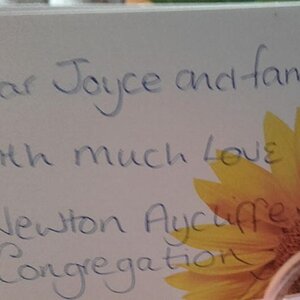 ar Joyce and fam
ith much Love
Newton Aycliffe
Congregation